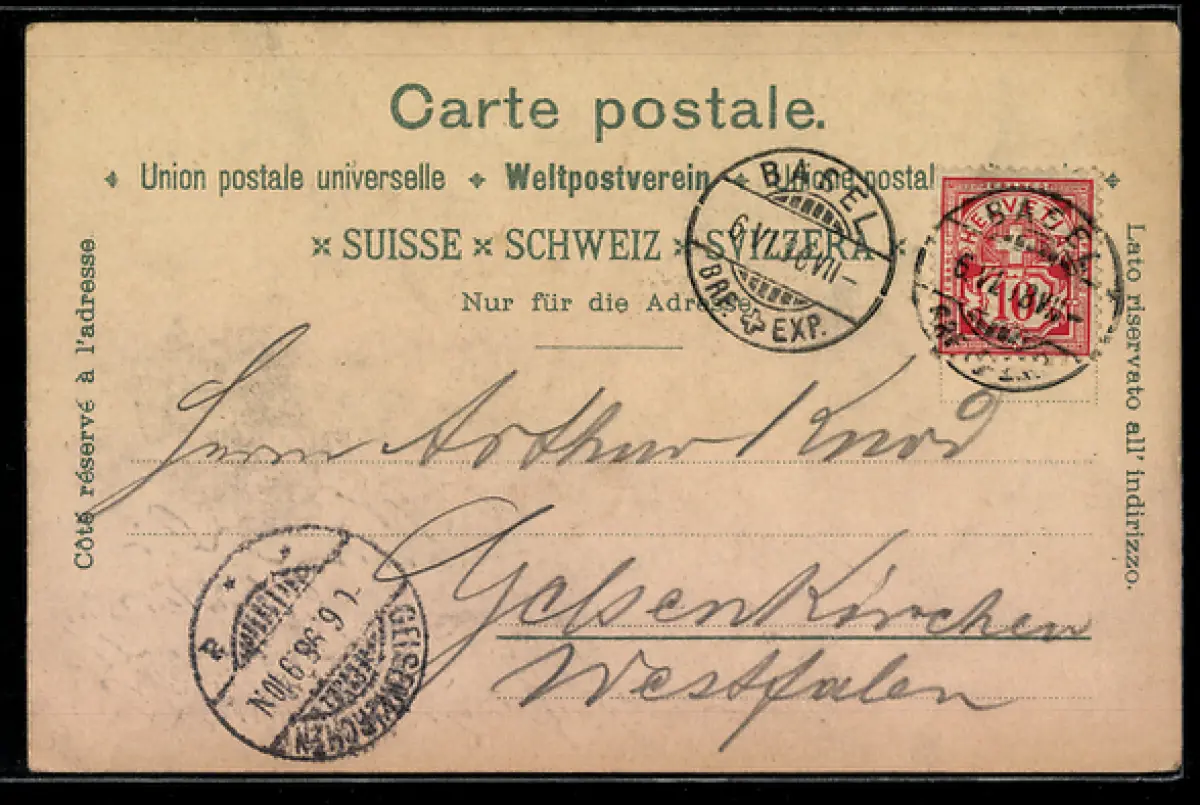 Carte postale.
Union postale universelle Weltpostverein Unione postal
SUISSE SCHWEIZ SVIZZERA
Nur für die Adresse
Côté réservé à l'adresse.
Lato riservato all' indirizzo.
BASEL
6 VI VII
BRF. EXP.
HELVETIA
10
BASEL
Herrn Arthur Knod
Gelsenkirchen
Westfalen
GELSENKIRCHEN